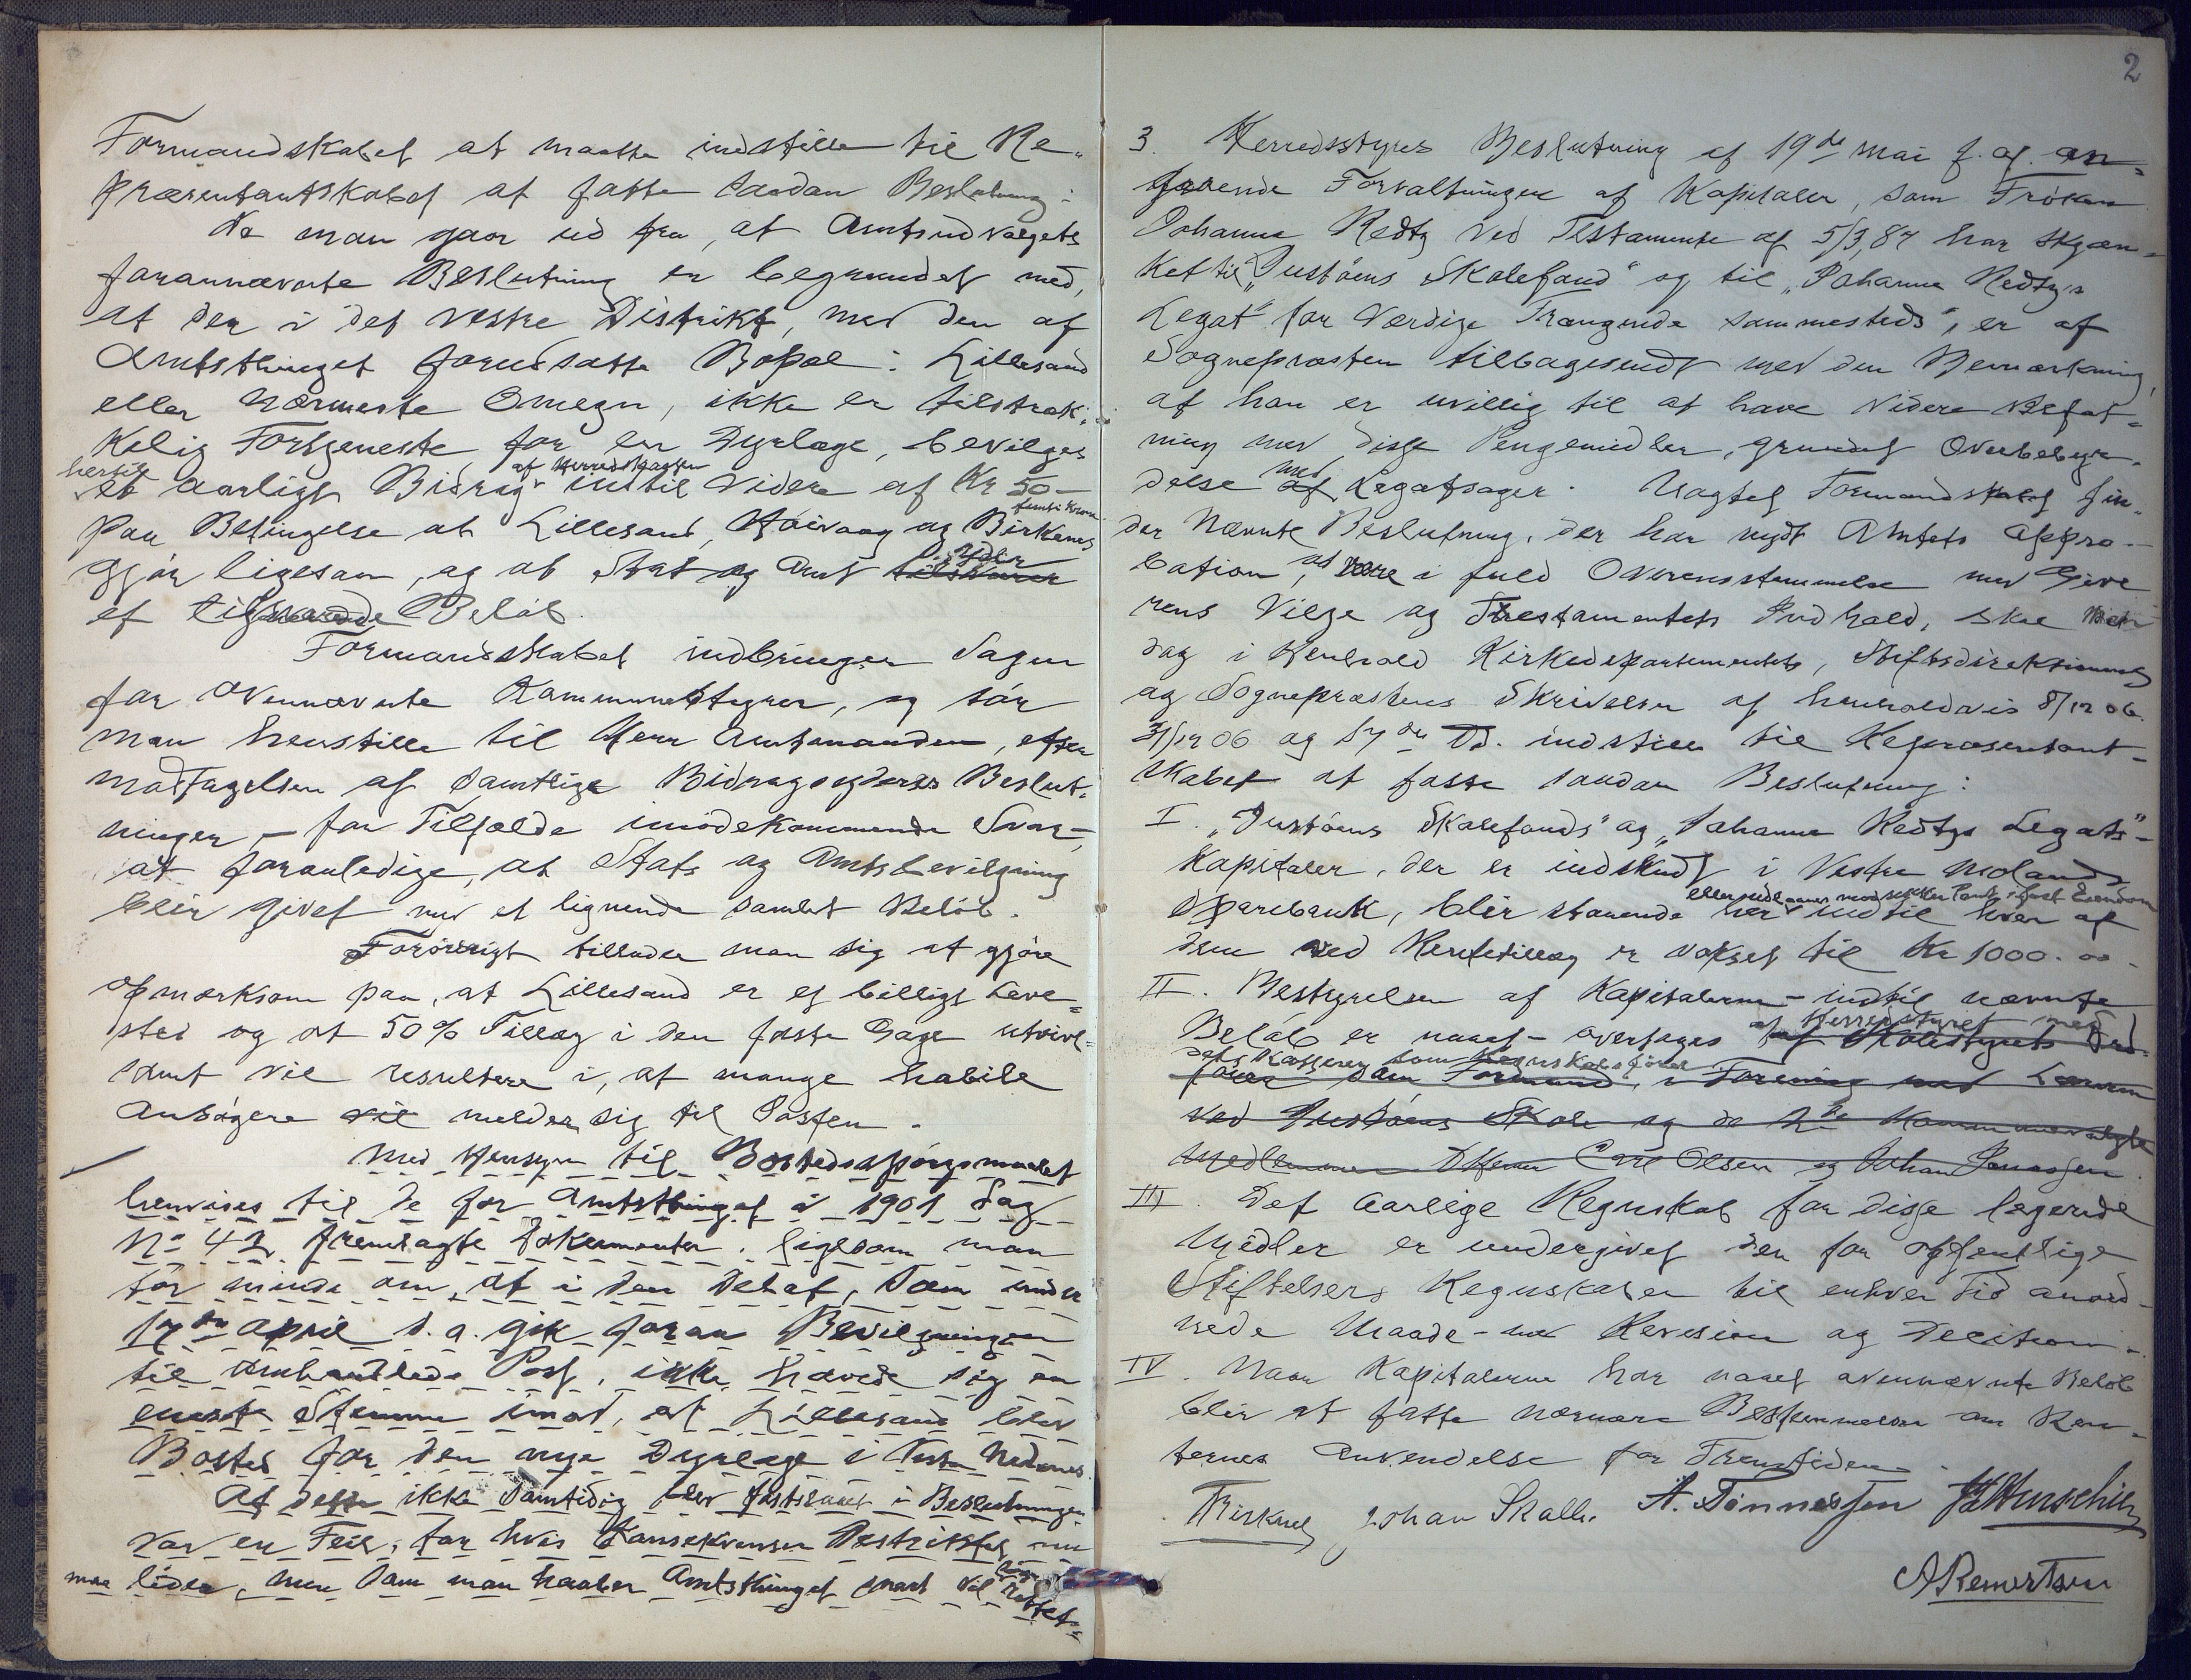 Formandskabet at maatte indstille til Re„
præsentantskabet at fatte saadan Beslutning:
Da man gaar ud fra, at Amtsudvalgets
forannævnte Beslutning er begrundet med,
at der i det vestre Distrikt, med den af
Amtsthinget forudsatte Bopæl i Lillesand
eller nærmeste Omegn, ikke er tilstræk-
kelig Fortjeneste for en Dyrlæge, bevilges
hertil et aarligt Bidrag af Herredskassen indtil videre af Kr 50 –
femti Kroner
paa Betingelse at Lillesand, Høivaag og Birkenes
gjør ligesaa, og at Stat og Amt tilskarer yder
et tilsvarende Beløb.
Formandskabet indbringer Sagen
for ovennævnte Kommunestyrer, og tør
man henstille til Herr Amtmanden, efter
modtagelsen af samtlige Bidragsyderes Beslut-
ninger, – for Tilfælde imødekommende Svar –
at foranledige, at Stats og Amtsbevilgning
blir givet med et lignende samlet Beløb.
Forøvrigt tillader man sig at gjøre
opmærksom paa, at Lillesand er et billigt Leve=
sted og at 50% Tillæg i den faste Gage utvivl=
somt vil resultere i, at mange habile
Ansøgere vil melder sig til Posten.
Med Hensyn til Bostedsspørgsmaalet
henvises til de for Amtsthinget i 1901 Sag
No 42 fremlagte Dokumenter, ligesom man
tør minde om, at i den Debat, som under
17de April d.a. gik foran Bevilgningen
til omhandlede Post, ikke hævede sig en
eneste Stemme imod, at Lillesand blev
Bosted for den nye Dyrlæge i Vestre Nedenes.
At dette ikke samtidig blev fastslaaet i Beslutningen
var en Feil, for hvis Konsekvenser Distriktet nu
maa lide, men som man haaber Amtsthinget snart vil rettet.
2
3. Herredsstyres Beslutning af 19de mai f. a. an=
gaaende Forvaltningen af Kapitaler, som Frøken
Johanne Redtz ved Testamente af 5/3, 87 har skjæn=
ket til „Justøens Skolefond" og til „Johanne Redtzs
Legat" for værdige Trængende sammesteds", er af
Sognepræsten tilbagesendt med den Bemærkning,
at han er uvillig til at have videre Befat=
ning med disse Pengemidler, grundet Overbebyr-
delse af med Legatsager. Uagtet Formandskabet fin„
der nævnte Beslutning, der har nydt Amtets Appro-
bation, at være i fuld Overensstemmelse med Give
rens Vilje og Testamentets Indhold, skal
dog i Henhold Kirkedepartementets, Stiftsdirektionens
og Sognepræstens Skrivelser af henholdsvis 8/12 06
31/12 06 og 17de ds. indstille til Repræsentant-
skabet at fatte saadan Beslutning:
I. „Justøens Skolefonds" og „Johanne Redtzs Legats"-
Kapitaler, der er indskudt i Vestre Molands
Sparebank, blir staaende her eller udlaanes mod sikker Pant i fast Eiendom indtil hver af
dem ved Rentetillæg er vokset til Kr 1000.00.
II. Bestyrelsen af Kapitalerne – indtil nævnte
Beløb er naaet – overtages af Skolestyrets Ord- af Herredsstyret med
fører som Formand, i Forening med Læreren dets Kasserer som Regnskabsfører
ved Justøens Skole og de 2de Kommunevalgte
Medlemmer DHerrer Carl Olsen og Johan Jonassen.
III. Det aarlige Regnskab for disse legerede
Midler er undergivet den for offentlige
Stiftelsers Regnskaber til enhver Tid anord-
nede Maade – med Revision og Decision.
IV. Naar Kapitalerne har naaet ovennævnte Beløb
blir at fatte nærmere Bestemmelse om Ren-
ternes Anvendelse for Fremtiden.
Johan Skalle. A. Tønnessen